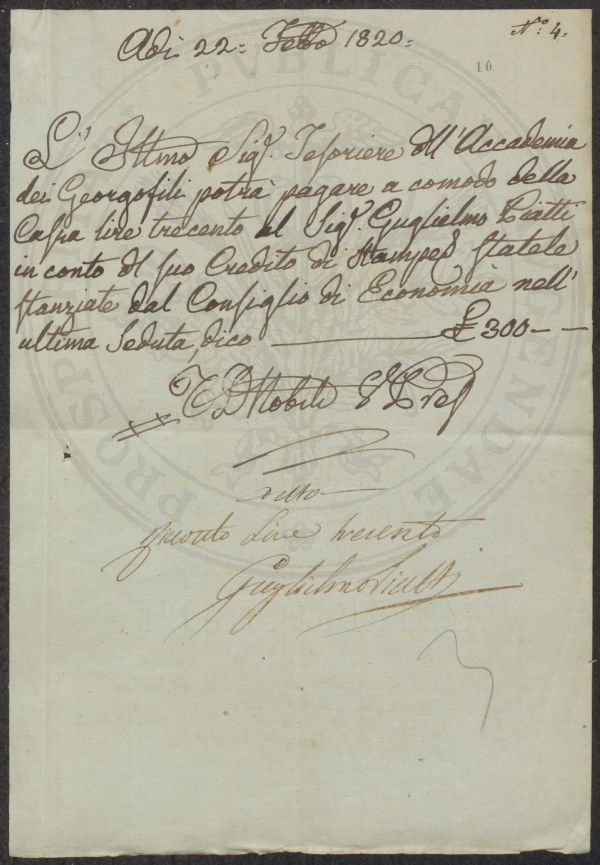 N.º 4.
Adi 22= Febbo 1820=
10
L' Illmo Sigr. Tesoriere dell' Accademia
dei Georgofili potrà pagare a comodo della
Cassa lire trecento al Sigr. Guglielmo Piatti
in conto del suo Credito di Stampe statele
stanziate dal Consiglio di Economia nell'
ultima Seduta, dico £ 300 –
Nobili V Pres
detto
Lire trecento
Guglielmo Piatti
PROSPERITATI PVBLICAE AVGENDAE